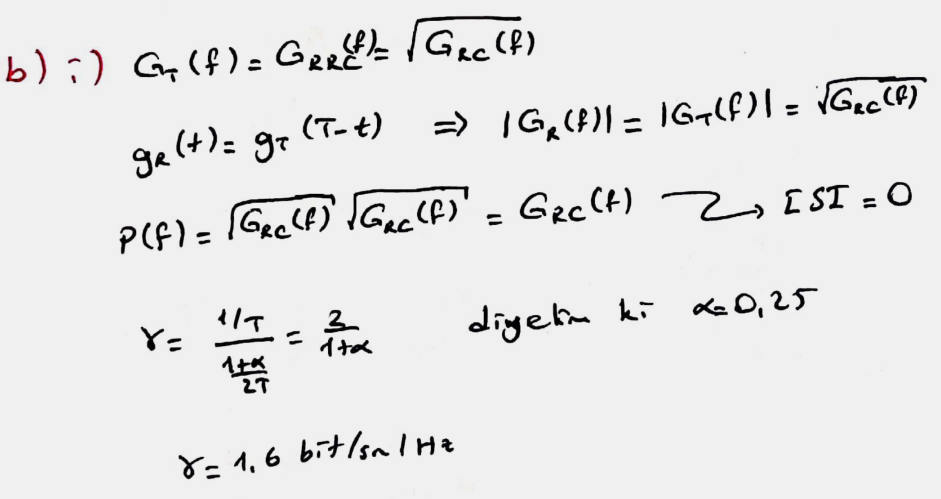 b) i) G_T(f) = G_RRC(f) = √G_RC(f)
g_R(t) = g_T(T-t) ⇒ |G_R(f)| = |G_T(f)| = √G_RC(f)
P(f) = √G_RC(f) √G_RC(f) = G_RC(f) → ISI = 0
γ = (1/T)/((1+α)/2T) = 2/(1+α) diyelim ki α=0,25
γ = 1,6 bit/sn/Hz